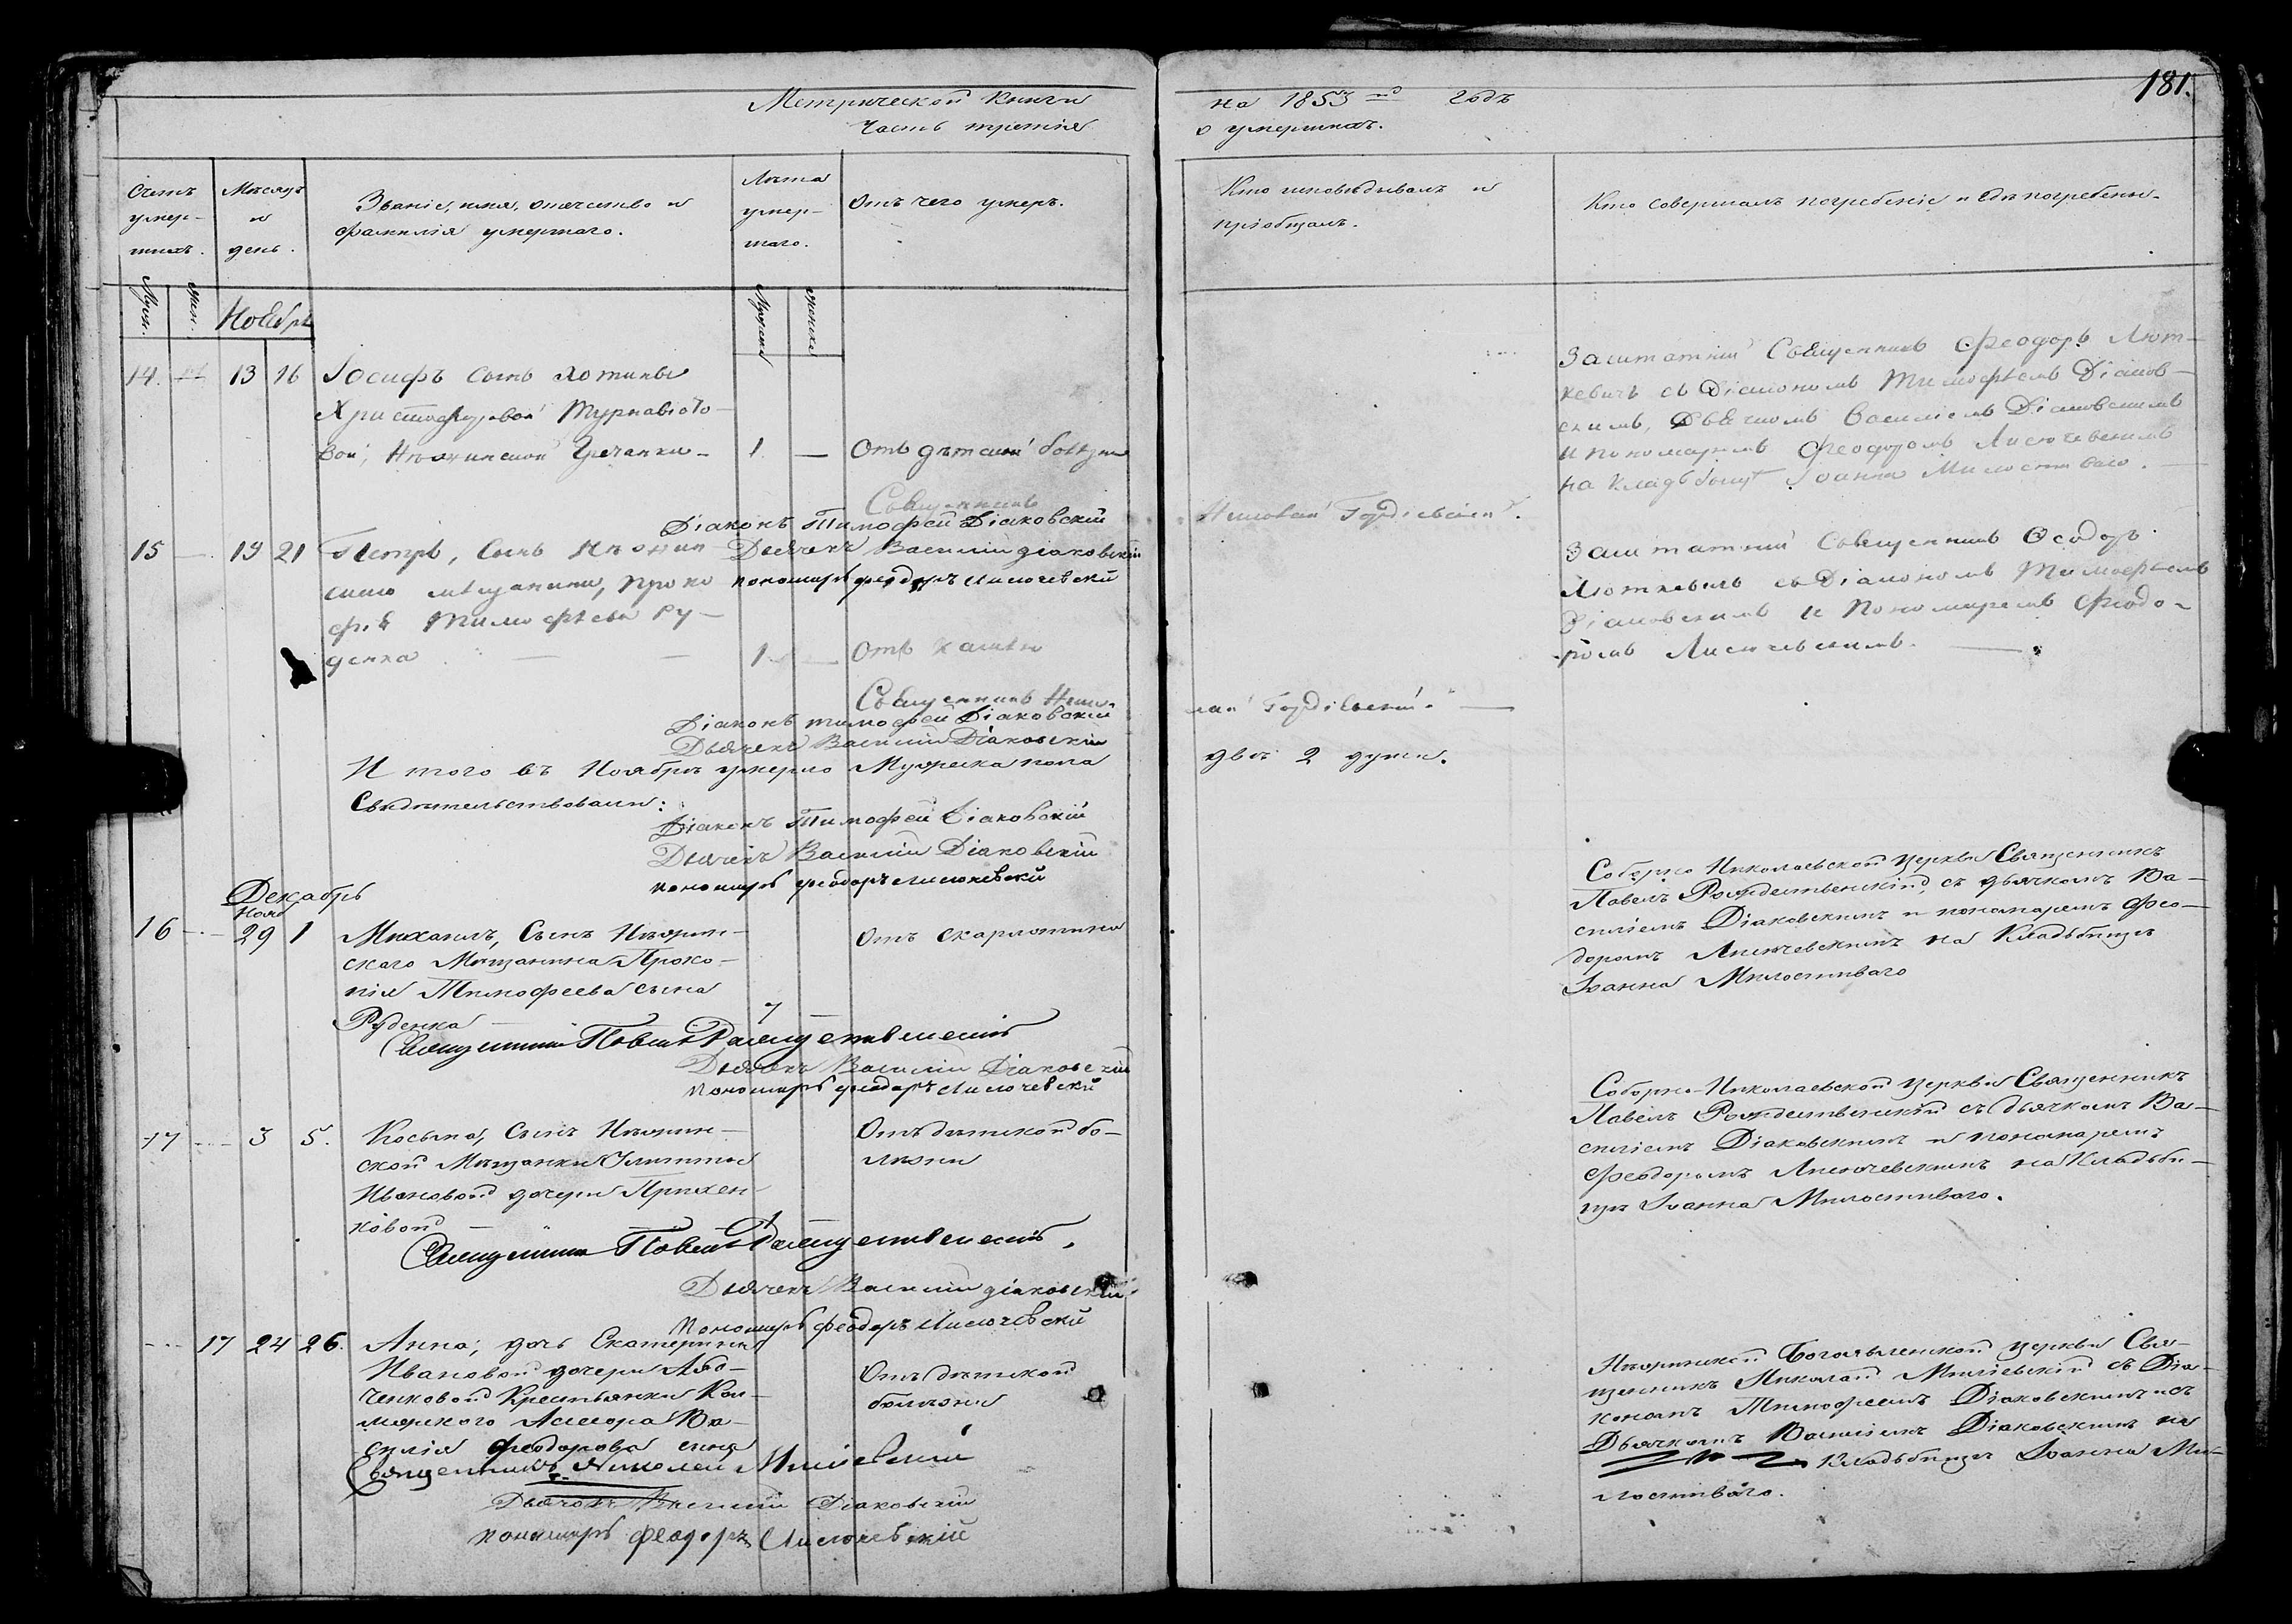 181.
Метрической Книги
на 1853 го Годъ
Часть третія
о умершихъ.
Счетъ умер-шихъ.
Мѣсяцъ и день.
Званіе, имя, отчество и фамилія умершаго.
Лѣта умер-шаго.
Отъ чего умеръ.
Кто исповѣдывалъ и пріобщалъ.
Кто совершалъ погребеніе и гдѣ погребены.
Муж.
Жен.
Ноябрь
14. 13 16 Іосифъ сынъ
Христофоровой
вой, Нѣжинской Гречанки 1 — Отъ дѣтской болѣзни
Заштатный Священникъ Феодоръ Лют-
кевичъ съ Діакономъ Тимофѣемъ Діаков-
скимъ, Дьячкомъ Василіемъ Діаковскимъ
и пономаремъ Феодоромъ Лисючевскимъ
на кладбищѣ Іоанна Милостиваго.
Священникъ
Николай Гордіевскій.
Діаконъ Тимофей Діаковскій
Дьячекъ Василій Діаковскій
пономарь феодоръ Лисючевскій
15 — 19 21 Петръ, Сынъ Нѣжин-
скаго мѣщанина, Проко
фія Тимофѣева Ру-
денка — — 1 — Отъ кашлю
Заштатный Священникъ Феодоръ
Люткевичъ съ Діакономъ Тимофѣемъ
Діаковскимъ и Пономаремъ Феодо-
ромъ Лисючевскимъ.
Священникъ Нико-
лай Гордіевскій.
Діаконъ тимофей Діаковскій
Дьячекъ Василій Діаковскій
И того въ Ноябрѣ умерло Мужеска пола
двѣ 2 души.
Свидѣтельствовали:
Діаконъ Тимофей Діаковскій
Дьячекъ Василій Діаковскій
пономарь феодоръ Лисючевскій
Декабрь
Нояб
16 — 29 1 Михаилъ, Сынъ Нѣжин-
скаго Мѣщанина Проко-
пія Тимофеева сына
Руденка — 7 — Отъ скарлатины
Соборно Николаевской церкви Священникъ
Павелъ Рождественскій, съ дьячкомъ Ва-
силіемъ Діаковскимъ и пономаремъ Фео-
доромъ Лисючевскимъ на Кладбищѣ
Іоанна Милостиваго
Священникъ Павелъ Рождественскій
Дьячекъ Василій Діаковскій
пономарь феодоръ Лисючевскій
17 — 3 5. Косьма, Сынъ Нѣжин-
ской Мѣщанки
Ивановой дочери
ковой — 1 — Отъ дѣтской бо-
лѣзни
Соборно-Николаевской церкви Священникъ
Павелъ Рождественскій съ дьячкомъ Ва-
силіемъ Діаковскимъ и пономаремъ
Феодоромъ Лисючевскимъ на Кладби-
щѣ Іоанна Милостиваго.
Священникъ Павелъ Рождественскій.
Дьячекъ Василій діаковскій
Пономарь феодоръ Лисючевскій
17 24 26. Анна, дочь Екатерины
Ивановой дочери
ченковой Крестьянки Кол-
лежского Асессора Ва-
силія Феодорова сына
Отъ дѣтской
болѣзни
Нѣжинской Богоявленской церкви Свя-
щенникъ Николай Миліевскій съ Діа-
кономъ Тимофеемъ Діаковскимъ и съ
Дьячкомъ Василіемъ Діаковскимъ на
Кладбищѣ Іоанна Ми-
лостиваго.
Священникъ Николай Миліевскій
Дьячокъ Василій Діаковскій
пономарь феодоръ Лисючевскій